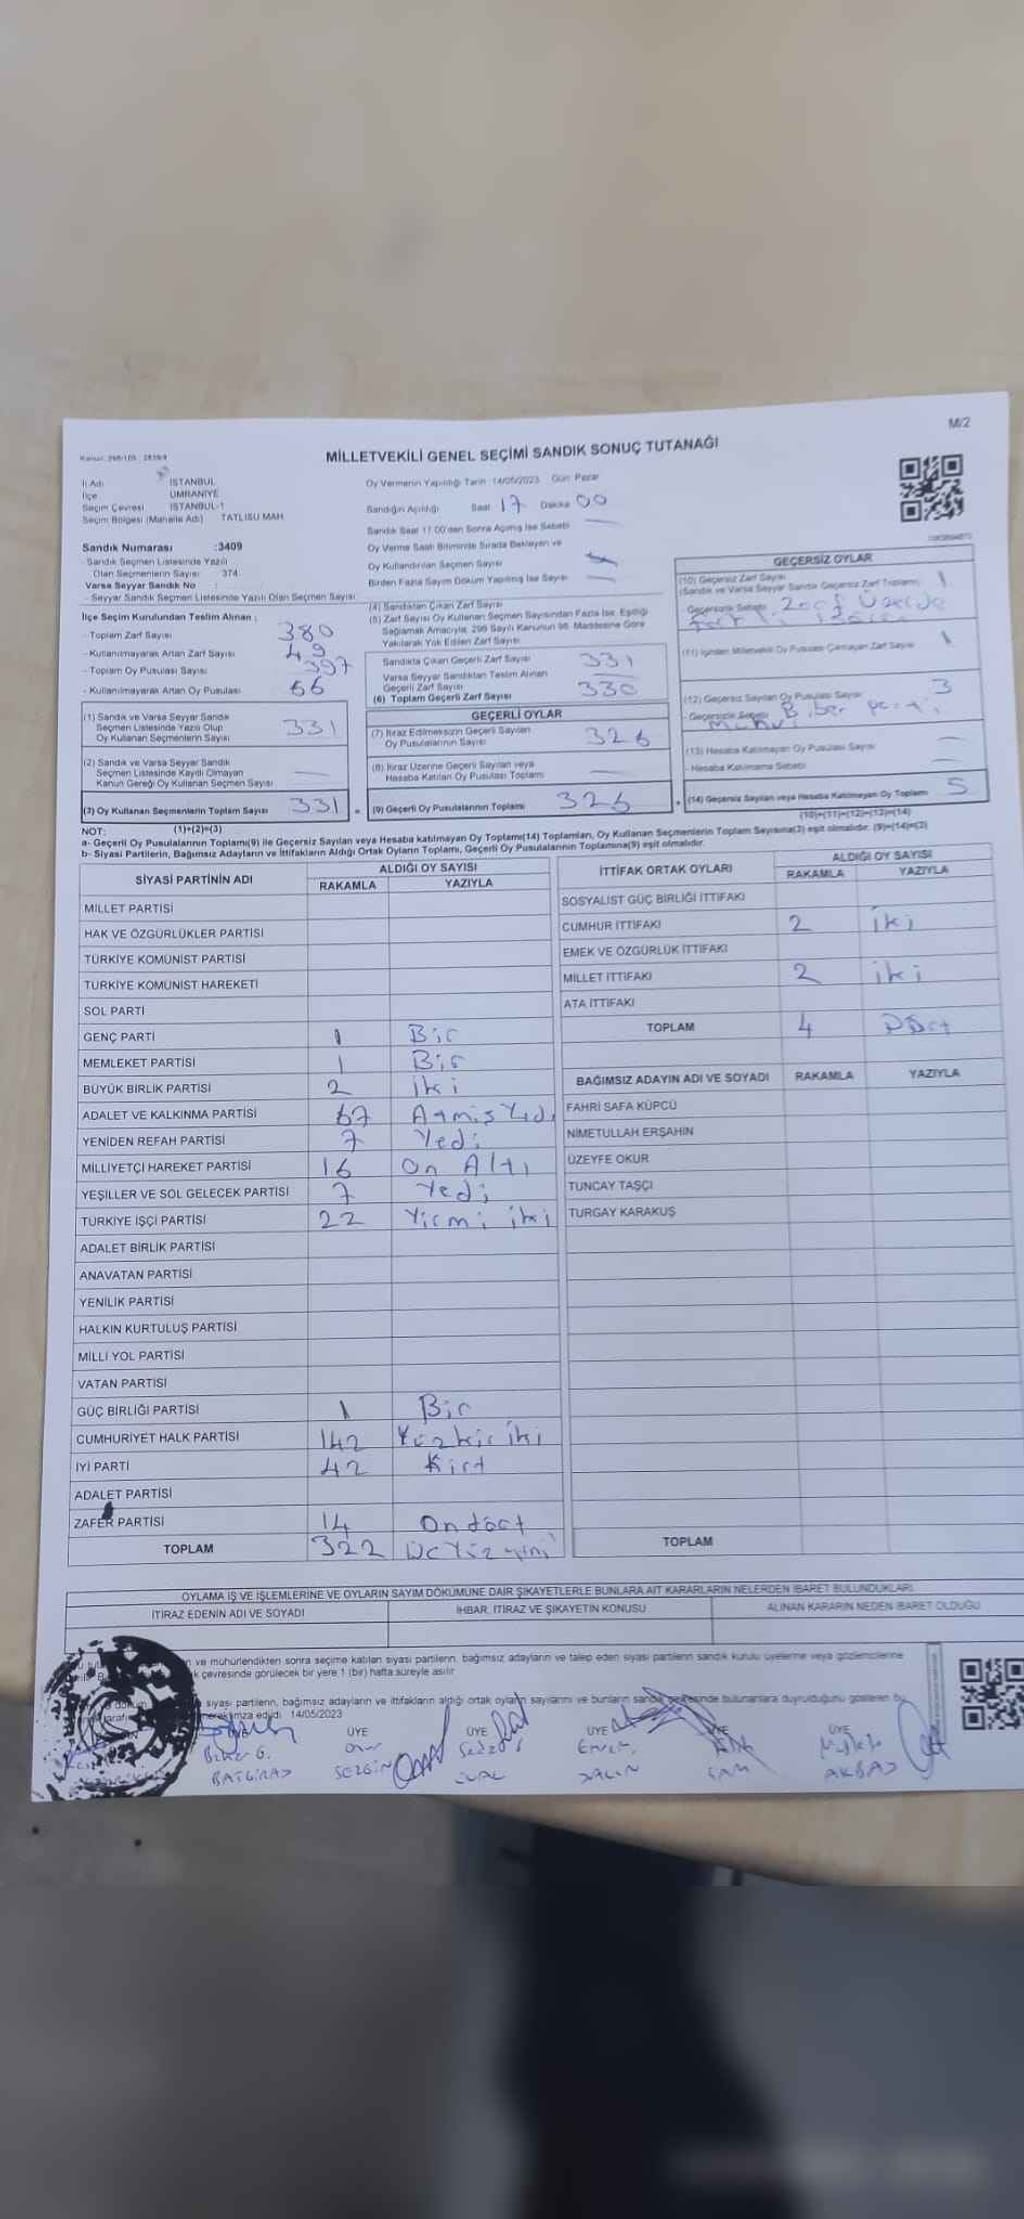 M/2
MİLLETVEKİLİ GENEL SEÇİMİ SANDIK SONUÇ TUTANAĞI
İl Adı İSTANBUL
İlçe ÜMRANİYE
Seçim Çevresi İSTANBUL-1
Seçim Bölgesi (Mahalle Adı) TATLISU MAH.
Sandık Numarası :3409
Sandık Seçmen Listesinde Yazılı
Olan Seçmenlerin Sayısı 374
Varsa Seyyar Sandık No :
- Seyyar Sandık Seçmen Listesinde Yazılı Olan Seçmen Sayısı
Oy Vermenin Yapıldığı Tarih :14/05/2023 Gün Pazar
Sandığın Açıldığı Saat 17 Dakika 00
Sandık Saat 17.00'den Sonra Açılmış İse Sebebi
Oy Verme Saati Bitiminde Sırada Bekleyen ve
Oy Kullandırılan Seçmen Sayısı
Birden Fazla Sayım Döküm Yapılmış İse Sayısı
İlçe Seçim Kurulundan Teslim Alınan :
- Toplam Zarf Sayısı 380
- Kullanılmayarak Artan Zarf Sayısı 49
- Toplam Oy Pusulası Sayısı 397
- Kullanılmayarak Artan Oy Pusulası 66
(1) Sandık ve Varsa Seyyar Sandık
Seçmen Listesinde Yazılı Olup
Oy Kullanan Seçmenlerin Sayısı 331
(2) Sandık ve Varsa Seyyar Sandık
Seçmen Listesinde Kayıtlı Olmayan
Kanun Gereği Oy Kullanan Seçmen Sayısı
(3) Oy Kullanan Seçmenlerin Toplam Sayısı 331
(1)+(2)=(3)
(4) Sandıktan Çıkan Zarf Sayısı
(5) Zarf Sayısı Oy Kullanan Seçmen Sayısından Fazla İse, Eşitliği
Sağlamak Amacıyla, 298 Sayılı Kanunun 98. Maddesine Göre
Yakılarak Yok Edilen Zarf Sayısı
Sandıkta Çıkan Geçerli Zarf Sayısı 331
Varsa Seyyar Sandıktan Teslim Alınan
Geçerli Zarf Sayısı
(6) Toplam Geçerli Zarf Sayısı 330
GEÇERLİ OYLAR
(7) İtiraz Edilmeksizin Geçerli Sayılan
Oy Pusulalarının Sayısı 326
(8) İtiraz Üzerine Geçerli Sayılan veya
Hesaba Katılan Oy Pusulası Toplamı
(9) Geçerli Oy Pusulalarının Toplamı 326
GEÇERSİZ OYLAR
(10) Geçersiz Zarf Sayısı
(Sandık ve Varsa Seyyar Sandık Geçersiz Zarf Toplamı) 1
Geçersizlik Sebebi Zarf Üzerinde
(11) İçinden Milletvekili Oy Pusulası Çıkmayan Zarf Sayısı 1
(12) Geçersiz Sayılan Oy Pusulası Sayısı 3
- Geçersizlik Sebebi
(13) Hesaba Katılmayan Oy Pusulası Sayısı
- Hesaba Katılmama Sebebi
(14) Geçersiz Sayılan veya Hesaba Katılmayan Oy Toplamı 5
(10)+(11)+(12)+(13)=(14)
NOT:
a- Geçerli Oy Pusulalarının Toplamı(9) ile Geçersiz Sayılan veya Hesaba katılmayan Oy Toplamı(14) Toplamları, Oy Kullanan Seçmenlerin Toplam Sayısına(3) eşit olmalıdır. (9)+(14)=(3)
b- Siyasi Partilerin, Bağımsız Adayların ve İttifakların Aldığı Ortak Oyların Toplamı, Geçerli Oy Pusulalarının Toplamına(9) eşit olmalıdır.
SİYASİ PARTİNİN ADI ALDIĞI OY SAYISI
RAKAMLA YAZIYLA
MİLLET PARTİSİ
HAK VE ÖZGÜRLÜKLER PARTİSİ
TÜRKİYE KOMÜNİST PARTİSİ
TÜRKİYE KOMÜNİST HAREKETİ
SOL PARTİ
GENÇ PARTİ 1 Bir
MEMLEKET PARTİSİ 1 Bir
BÜYÜK BİRLİK PARTİSİ 2 iki
ADALET VE KALKINMA PARTİSİ 67 Atmış Yedi
YENİDEN REFAH PARTİSİ 7 Yedi
MİLLİYETÇİ HAREKET PARTİSİ 16 On Altı
YEŞİLLER VE SOL GELECEK PARTİSİ 7 Yedi
TÜRKİYE İŞÇİ PARTİSİ 22 Yirmi iki
ADALET BİRLİK PARTİSİ
ANAVATAN PARTİSİ
YENİLİK PARTİSİ
HALKIN KURTULUŞ PARTİSİ
MİLLİ YOL PARTİSİ
VATAN PARTİSİ
GÜÇ BİRLİĞİ PARTİSİ 1 Bir
CUMHURİYET HALK PARTİSİ 142 Yüzkır iki
İYİ PARTİ 42
ADALET PARTİSİ
ZAFER PARTİSİ 14 Ondört
TOPLAM 322
İTTİFAK ORTAK OYLARI ALDIĞI OY SAYISI
RAKAMLA YAZIYLA
SOSYALİST GÜÇ BİRLİĞİ İTTİFAKI
CUMHUR İTTİFAKI 2 iki
EMEK VE ÖZGÜRLÜK İTTİFAKI
MİLLET İTTİFAKI 2 iki
ATA İTTİFAKI
TOPLAM 4 Dört
BAĞIMSIZ ADAYIN ADI VE SOYADI RAKAMLA YAZIYLA
FAHRİ SAFA KÜPCÜ
NİMETULLAH ERŞAHİN
ÜZEYFE OKUR
TUNCAY TAŞÇI
TURGAY KARAKUŞ
TOPLAM
OYLAMA İŞ VE İŞLEMLERİNE VE OYLARIN SAYIM DÖKÜMÜNE DAİR ŞİKAYETLERLE BUNLARA AİT KARARLARIN NELERDEN İBARET BULUNDUKLARI
İTİRAZ EDENİN ADI VE SOYADI İHBAR, İTİRAZ VE ŞİKAYETİN KONUSU ALINAN KARARIN NEDEN İBARET OLDUĞU
ve mühürlendikten sonra seçime katılan siyasi partilerin, bağımsız adayların ve talep eden siyasi partilerin sandık kurulu üyelerine veya gözlemcilerine
çevresinde görülecek bir yere 1 (bir) hafta süreyle asılır.
siyasi partilerin, bağımsız adayların ve ittifakların aldığı ortak oyların sayılarını ve bunların sandık çevresinde bulunanlara duyurulduğunu gösteren
imza edildi. 14/05/2023
ÜYE ÜYE ÜYE ÜYE
SEZGİN YALÇIN AKBAŞ